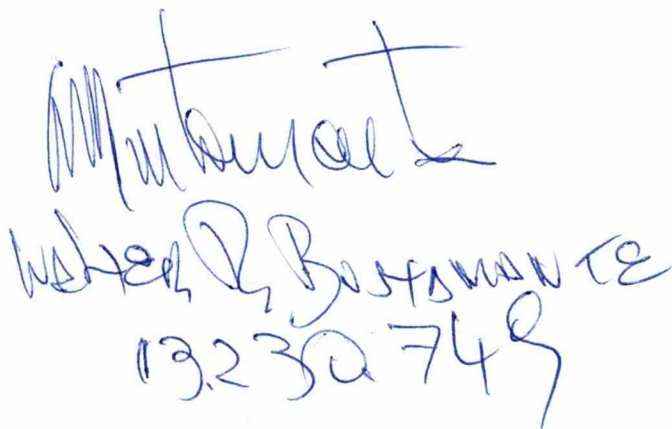 WALTER R, BUSTAMANTE
13.230749